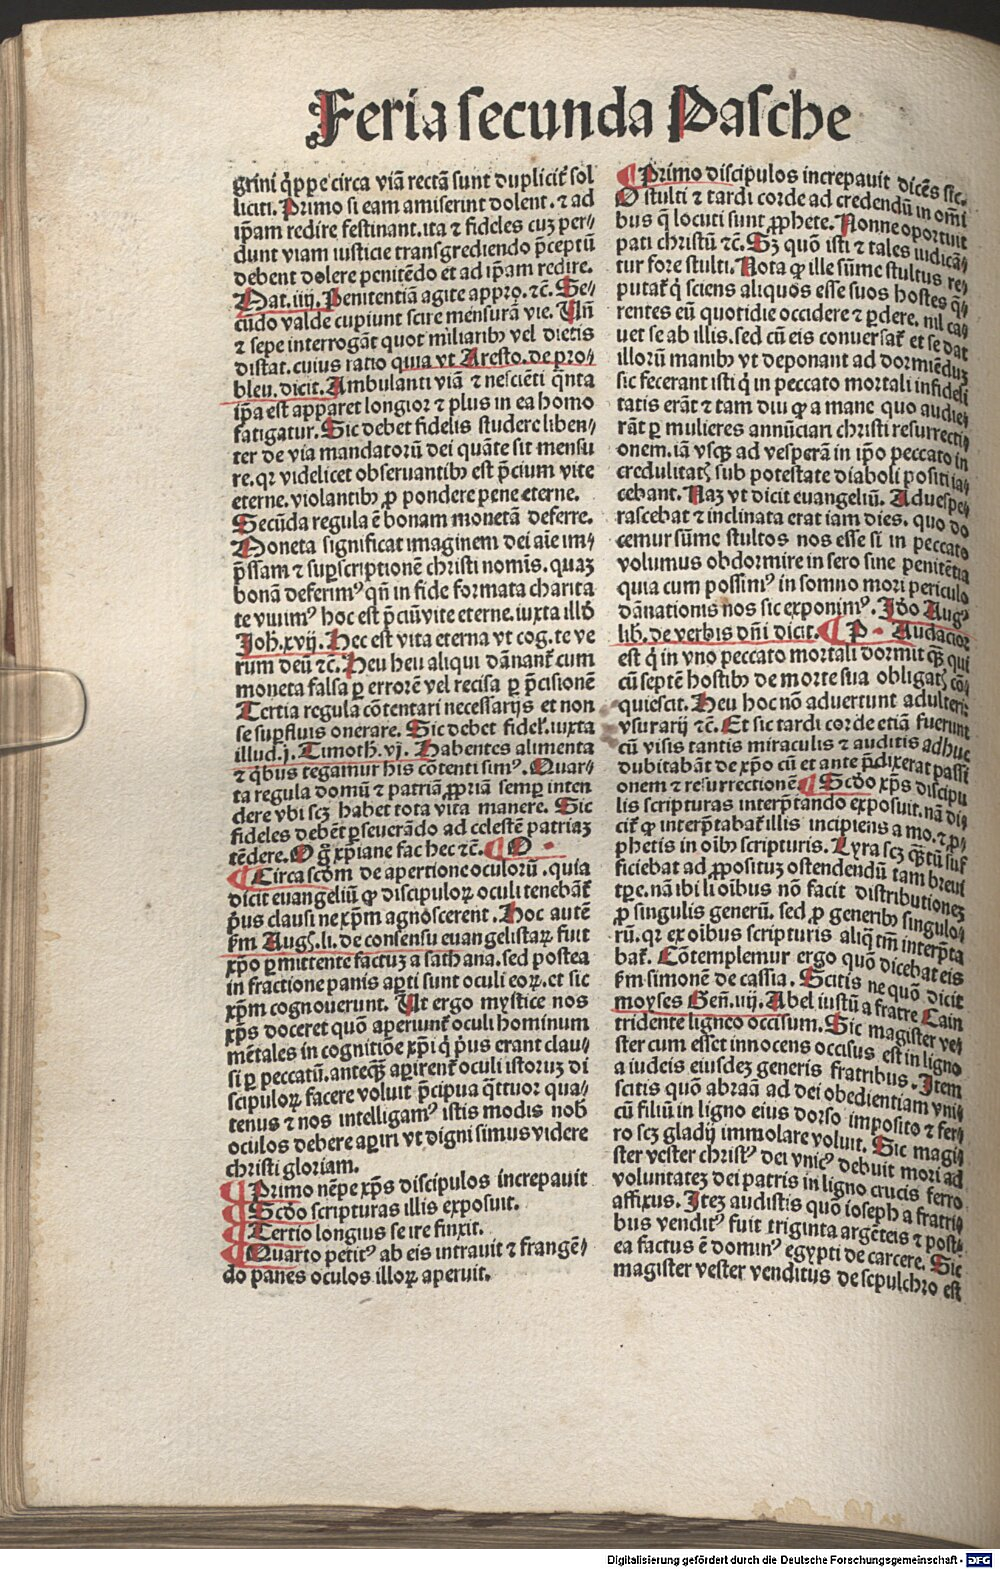 Feria secunda Pasche
grini q̇ppe circa viā rectā sunt duplicit̃ sol
liciti. Primo si eam amiserint dolent. ⁊ ad
ip̄am redire festinant. ita ⁊ fideles cuȝ per⸗
dunt viam iusticie transgrediendo p̄ceptū
debent dolere penitēdo et ad ip̄am redire.
Mat. iiij. Penitentiā agite appro. ⁊c̄. Se⸗
cūdo valde cupiunt scire mensurā vie. Vn̄
⁊ sepe interrogāt quot miliarib⁹ vel dietis
distat. cuius ratio quia vt Aresto. de pro⸗
bleu. dicit. Ambulanti viā ⁊ nesciēti q̄nta
ip̄a est apparet longior ⁊ plus in ea homo
fatigatur. Sic debet fidelis studere liben⸗
ter de via mandatorū dei quāte sit mensu
re. qr videlicet obseruantib⁹ est p̄cium vite
eterne. violantib⁹ ꝓ pondere pene eterne.
Secūda regula ē bonam monetā deferre.
Moneta significat imaginem dei aīe im⸗
p̄ssam ⁊ suꝑscriptionē christi nomīs. quaȝ
bonā deferim⁹ qn̄ in fide formata charita
te viuim⁹ hoc est p̄ciū vite eterne. iuxta illō
Joh. xvij. Hec est vita eterna vt cog. te ve
rum deū ⁊c̄. Heu heu aliqui dānant̃ cum
moneta falsa ꝑ errorē vel recisa ꝑ p̄cisionē
Tertia regula cōtentari necessarijs et non
se suꝑfluis onerare. Sic debet fidel̃. iuxta
illud. j. Timoth. vj. Habentes alimenta
⁊ q̇bus tegamur his cōtenti sim⁹. Quar⸗
ta regula domū ⁊ patriā ꝓpriā semꝑ inten
dere vbi scȝ habet tota vita manere. Sic
fideles debēt ꝑseuerādo ad celestē patriaȝ
tēdere. O g̊ xp̄iane fac hec ⁊c̄. ¶ O .
¶ Circa scd̄m de apertione oculorū. quia
dicit euangeliū ꝙ discipuloꝝ oculi tenebāt̃
p̄us clausi ne xp̄m agnoscerent. Hoc autē
ẜm Aug. li. de consensu euangelistaꝝ fuit
xp̄o ꝑmittente factuȝ a sathana. sed postea
in fractione panis aꝑti sunt oculi eoꝝ. et sic
xp̄m cognouerunt. Ut ergo mystice nos
xp̄s doceret quō aperiunt̃ oculi hominum
mētales in cognitiōe xp̄i q̇ p̄us erant clau⸗
si ꝑ peccatū. anteq̄ȝ aꝑirent̃ oculi istoruȝ di
scipuloꝝ facere voluit p̄cipua q̄ttuor qua⸗
tenus ⁊ nos intelligam⁹ istis modis nob̄
oculos debere aꝑiri vt digni simus videre
christi gloriam.
¶ Primo nēpe xp̄s discipulos increpauit
¶ Scd̄o scripturas illis exposuit.
¶ Tertio longius se ire finxit.
¶ Quarto petit⁹ ab eis intrauit ⁊ frangē⸗
do panes oculos illoꝝ aperuit.
¶ Primo discipulos increpauit dicēs sic.
O stulti ⁊ tardi corde ad credendū in omī
bus q̄ locuti sunt ꝓphete. Nonne oportuit
pati christū ⁊c̄. Sȝ quō isti ⁊ tales iudicā⸗
tur fore stulti. Nota ꝙ ille sūme stultus re⸗
putat̃ q̇ sciens aliquos esse suos hostes q̄⸗
rentes eū quotidie occidere ⁊ ꝑdere. nil ca⸗
uet se ab illis. sed cū eis conuersat̃ et se dat
illorū manib⁹ vt deponant ad dormiēduȝ
sic fecerant isti q̇ in peccato mortali infideli
tatis erāt ⁊ tam diu ꝙ a mane quo audie⸗
rāt ꝑ mulieres annūciari christi resurrecti⸗
onem. iā vsqȝ ad vesperā in ip̄o peccato in
credulitatꝭ sub potestate diaboli positi ia⸗
cebant. Naȝ vt dicit euangeliū. Aduespe⸗
rascebat ⁊ inclinata erat iam dies. quo do
cemur sūme stultos nos esse si in peccato
volumus obdormire in sero sine penitētia
quia cum possim⁹ in somno mori periculo
dānationis nos sic exponim⁹. Jdō Aug⁹
lib. de verbis dn̄i dicit. ¶ P . Audacior
est q̇ in vno peccato mortali dormit q̄ȝ qui
cū septē hostib⁹ de morte sua obligatꝭ cō⸗
quiescit. Heu hoc nō aduertunt adulteri
vsurarij ⁊c̄. Et sic tardi corde etiā fuerunt
cū visis tantis miraculis ⁊ auditis adhuc
dubitabāt de xp̄o cū et ante p̄dixerat passi
onem ⁊ resurrectionē ¶ Scd̄o xp̄s discipu
lis scripturas interp̄tando exposuit. nā di⸗
cit̃ ꝙ interp̄tabat̃ illis incipiens a mo. ⁊ ꝓ⸗
phetis in oīb⁹ scripturis. Lyra scȝ q̄ȝtū suf
ficiebat ad ꝓpositū ostendendū tam breui
tꝑe. nā ibi li oībus nō facit distributioneȝ
ꝓ singulis generū. sed ꝓ generib⁹ singulo⸗
rū. qr ex oībus scripturis aliq̄ tm̄ interp̄ta
bat̃. Cōtemplemur ergo quō dicebat eis
ẜm simonē de cassia. Scitis ne quō dicit
moyses Gen̄. iiij. Abel iustū a fratre Cain
tridente ligneo occisum. Sic magister ve⸗
ster cum esset innocens occisus est in ligno
a iudeis eiusdeȝ generis fratribus. Item
scitis quō abraā ad dei obedientiam vni⸗
cū filiū in ligno eius dorso imposito ⁊ fer⸗
ro scȝ gladij immolare voluit. Sic magi⸗
ster vester christ⁹ dei vnic⁹ debuit mori ad
voluntateȝ dei patris in ligno crucis ferro
affixus. Iteȝ audistis quō ioseph a fratri⸗
bus vendit⁹ fuit triginta argēteis ⁊ post⸗
ea factus ē domin⁹ egypti de carcere. Sic
magister vester venditus de sepulchro est
Digitalisierung gefördert durch die Deutsche Forschungsgemeinschaft - DFG